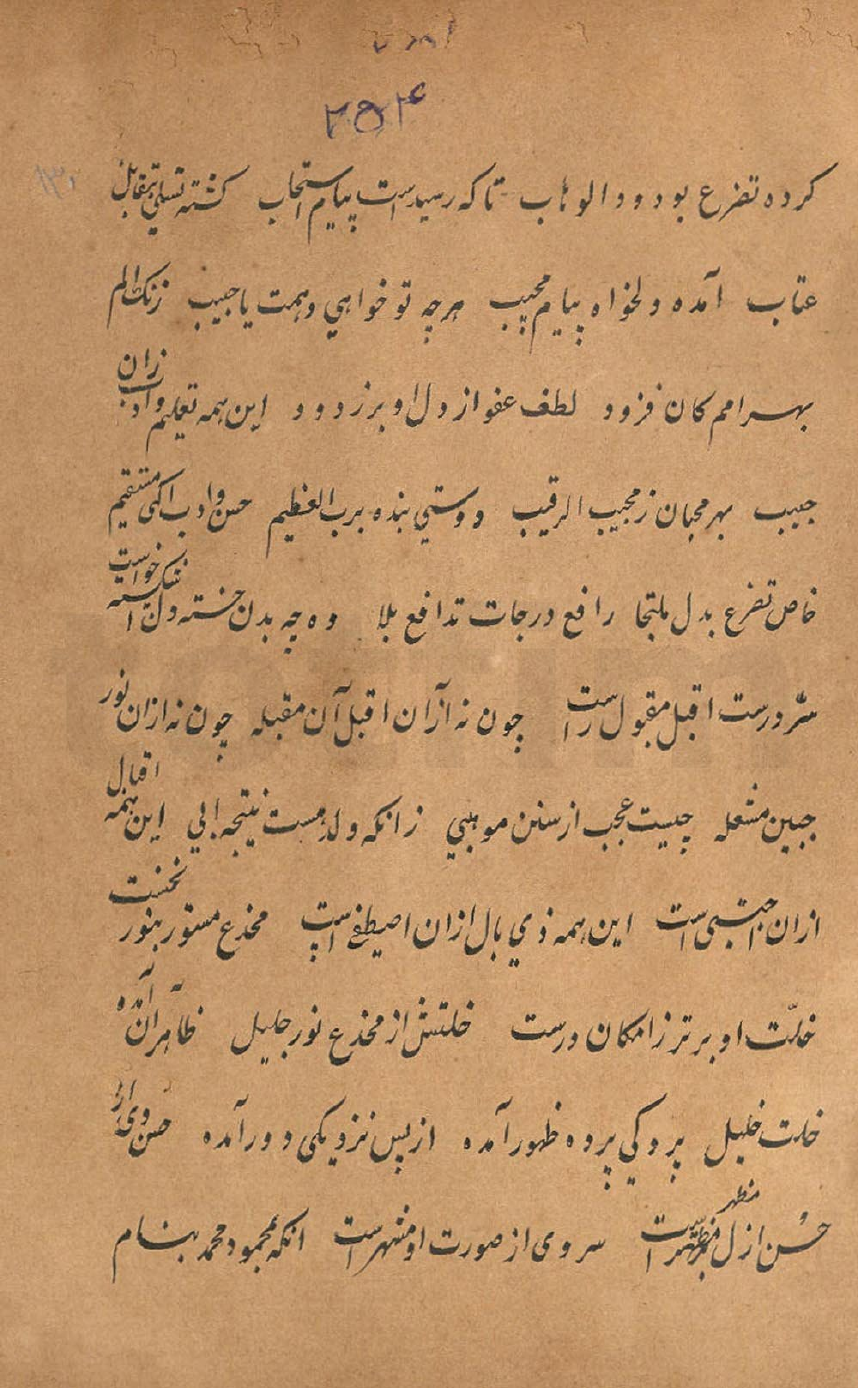 ۲۵۴
۱۳۰
کرده تضرع بودود الوهاب تا که رسیدست پیام استجاب گشته تسلی بمقابل
عتاب آمده دلخواه پیام مجیب هر چه تو خواهی دهمت یا حبیب زنگ الم
بهر امم کان فزود لطف عفو از دل او بر زدود این همه تعلیم و ادب زان
حبیب بهر محبان ز مجیب الرقیب دوستی بنده برب العظیم حسن و ادب مستقیم
خاص تضرع بدل ملتجا رافع درجات تدافع بلا وه چه بدن خسته و دل شکسته خواست
سرورست اقبل مقبول راست چون نه از آن اقبل آن مقبله چون نه ازان نور
جبین مشعله چیست عجب از سنن موهبی زانکه ولد هست نتیجه ابی این همه اقبال
ازان اجتبی است این همه ذی بال ازان اصطفی است مخدع مستور بنور نخست
خلّت او برتر ز امکان درست خلتش از مخدع نور جلیل ظاهر ان آمده
خلت خلیل پردگی پرده ظهور آمده از پس نزدیکی دور آمده حسن وی از
حُسن ازل مظهر است سروی از صورت او مشهر است انکه بمحمود محمد بنام